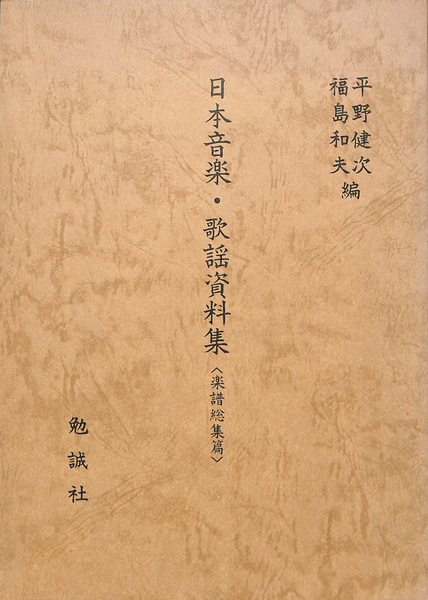 平野健次
福島和夫編
日本音楽・歌謡資料集〈楽譜総集篇〉
勉誠社